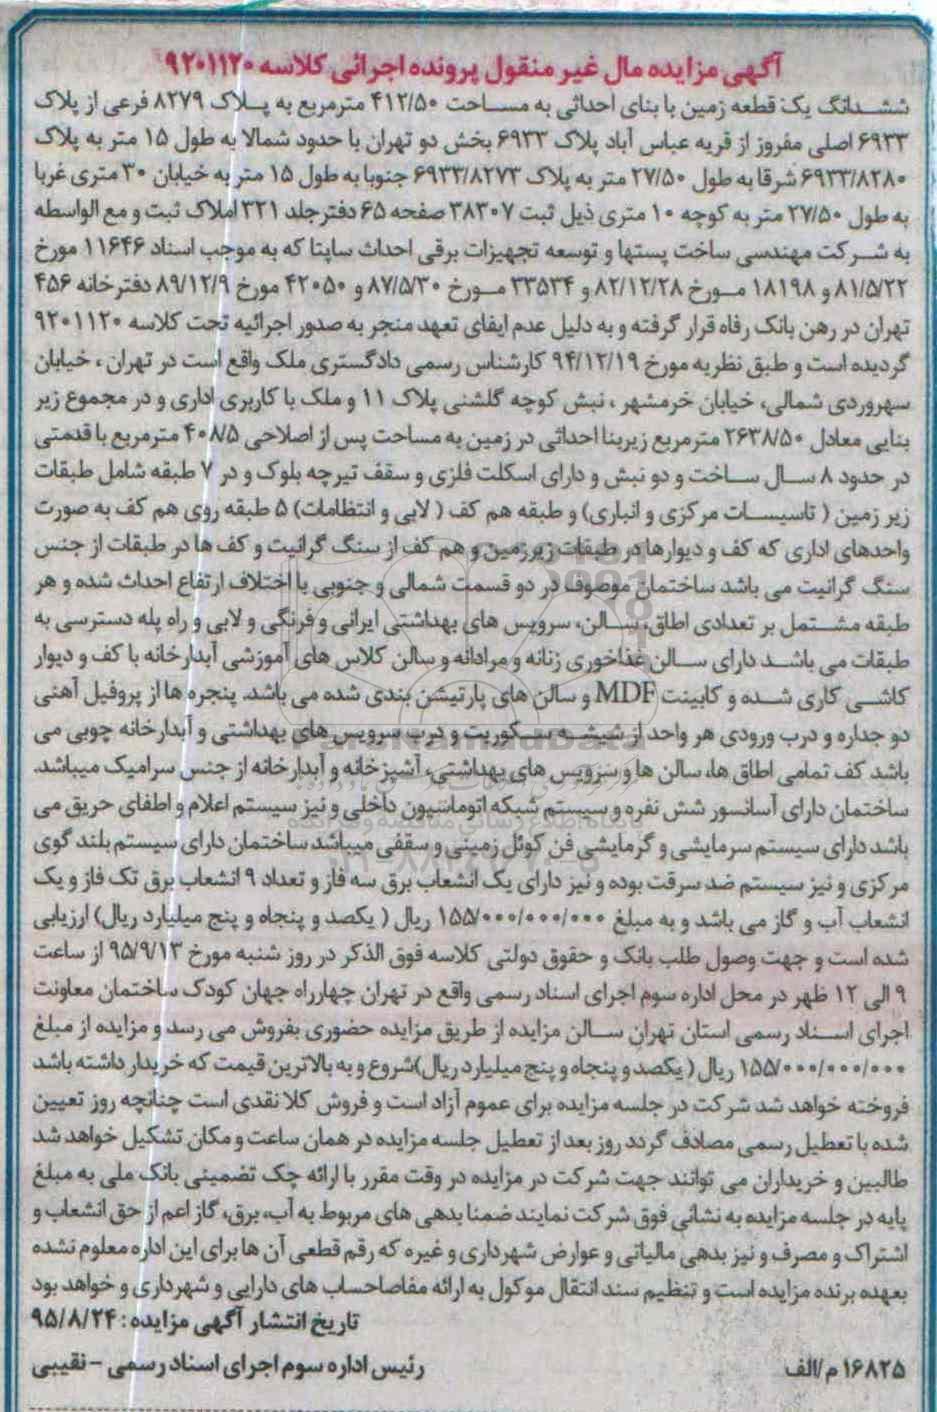 آگهی مزایده مال غیر منقول پرونده اجرائی کلاسه ۹۲۰۱۱۲۰
ششدانگ یک قطعه زمین با بنای احداثی به مساحت ۴۱۲/۵۰ مترمربع به پلاک ۸۲۷۹ فرعی از پلاک
۶۹۳۳ اصلی مفروز از قریه عباس آباد پلاک ۶۹۳۳ بخش دو تهران با حدود شمالا به طول ۱۵ متر به پلاک
۶۹۳۳/۸۲۸۰ شرقا به طول ۲۷/۵۰ متر به پلاک ۶۹۳۳/۸۲۷۳ جنوبا به طول ۱۵ متر به خیابان ۳۰ متری غربا
به طول ۲۷/۵۰ متر به کوچه ۱۰ متری ذیل ثبت ۳۸۳۰۷ صفحه ۶۵ دفترجلد ۳۲۱ املاک ثبت و مع الواسطه
به شرکت مهندسی ساخت پستها و توسعه تجهیزات برقی احداث ساپتا که به موجب اسناد ۱۱۶۴۶ مورخ
۸۱/۵/۲۲ و ۱۸۱۹۸ مورخ ۸۲/۱۲/۲۸ و ۳۳۵۳۴ مورخ ۸۷/۵/۳۰ و ۴۲۰۵۰ مورخ ۸۹/۱۲/۹ دفترخانه ۴۵۶
تهران در رهن بانک رفاه قرار گرفته و به دلیل عدم ایفای تعهد منجر به صدور اجرائیه تحت کلاسه ۹۲۰۱۱۲۰
گردیده است و طبق نظریه مورخ ۹۴/۱۲/۱۹ کارشناس رسمی دادگستری ملک واقع است در تهران ، خیابان
سهروردی شمالی، خیابان خرمشهر ، نبش کوچه گلشنی پلاک ۱۱ و ملک با کاربری اداری و در مجموع زیر
بنایی معادل ۲۶۳۸/۵۰ مترمربع زیربنا احداثی در زمین به مساحت پس از اصلاحی ۴۰۸/۵ مترمربع با قدمتی
در حدود ۸ سال ساخت و دو نبش و دارای اسکلت فلزی و سقف تیرچه بلوک و در ۷ طبقه شامل طبقات
زیر زمین ( تاسیسات مرکزی و انباری) و طبقه هم کف ( لابی و انتظامات) ۵ طبقه روی هم کف به صورت
واحدهای اداری که کف و دیوارها در طبقات زیرزمین و هم کف از سنگ گرانیت و کف ها در طبقات از جنس
سنگ گرانیت می باشد ساختمان موصوف در دو قسمت شمالی و جنوبی با اختلاف ارتفاع احداث شده و هر
طبقه مشتمل بر تعدادی اطاق، سالن، سرویس های بهداشتی ایرانی و فرنگی و لابی و راه پله دسترسی به
طبقات می باشد دارای سالن غذاخوری زنانه و مردانه و سالن کلاس های آموزشی آبدارخانه با کف و دیوار
کاشی کاری شده و کابینت MDF و سالن های پارتیشن بندی شده می باشد. پنجره ها از پروفیل آهنی
دو جداره و درب ورودی هر واحد از شیشه سکوریت و درب سرویس های بهداشتی و آبدارخانه چوبی می
باشد کف تمامی اطاق ها، سالن ها و سرویس های بهداشتی، آشپزخانه و آبدارخانه از جنس سرامیک میباشد.
ساختمان دارای آسانسور شش نفره و سیستم شبکه اتوماسیون داخلی و نیز سیستم اعلام و اطفای حریق می
باشد دارای سیستم سرمایشی و گرمایشی فن کوئل زمینی و سقفی میباشد ساختمان دارای سیستم بلند گوی
مرکزی و نیز سیستم ضد سرقت بوده و نیز دارای یک انشعاب برق سه فاز و تعداد ۹ انشعاب برق تک فاز و یک
انشعاب آب و گاز می باشد و به مبلغ ۱۵۵/۰۰۰/۰۰۰/۰۰۰ ریال ( یکصد و پنجاه و پنج میلیارد ریال) ارزیابی
شده است و جهت وصول طلب بانک و حقوق دولتی کلاسه فوق الذکر در روز شنبه مورخ ۹۵/۹/۱۳ از ساعت
۹ الی ۱۲ ظهر در محل اداره سوم اجرای اسناد رسمی واقع در تهران چهارراه جهان کودک ساختمان معاونت
اجرای اسناد رسمی استان تهران سالن مزایده از طریق مزایده حضوری بفروش می رسد و مزایده از مبلغ
۱۵۵/۰۰۰/۰۰۰/۰۰۰ ریال ( یکصد و پنجاه و پنج میلیارد ریال)شروع و به بالاترین قیمت که خریدار داشته باشد
فروخته خواهد شد شرکت در جلسه مزایده برای عموم آزاد است و فروش کلا نقدی است چنانچه روز تعیین
شده با تعطیل رسمی مصادف گردد روز بعد از تعطیل جلسه مزایده در همان ساعت و مکان تشکیل خواهد شد
طالبین و خریداران می توانند جهت شرکت در مزایده در وقت مقرر با ارائه چک تضمینی بانک ملی به مبلغ
پایه در جلسه مزایده به نشانی فوق شرکت نمایند ضمنا بدهی های مربوط به آب، برق، گاز اعم از حق انشعاب و
اشتراک و مصرف و نیز بدهی مالیاتی و عوارض شهرداری و غیره که رقم قطعی آن ها برای این اداره معلوم نشده
بعهده برنده مزایده است و تنظیم سند انتقال موکول به ارائه مفاصاحساب های دارایی و شهرداری و خواهد بود
تاریخ انتشار آگهی مزایده : ۹۵/۸/۲۴
۱۶۸۲۵ م/الف
رئیس اداره سوم اجرای اسناد رسمی - نقیبی